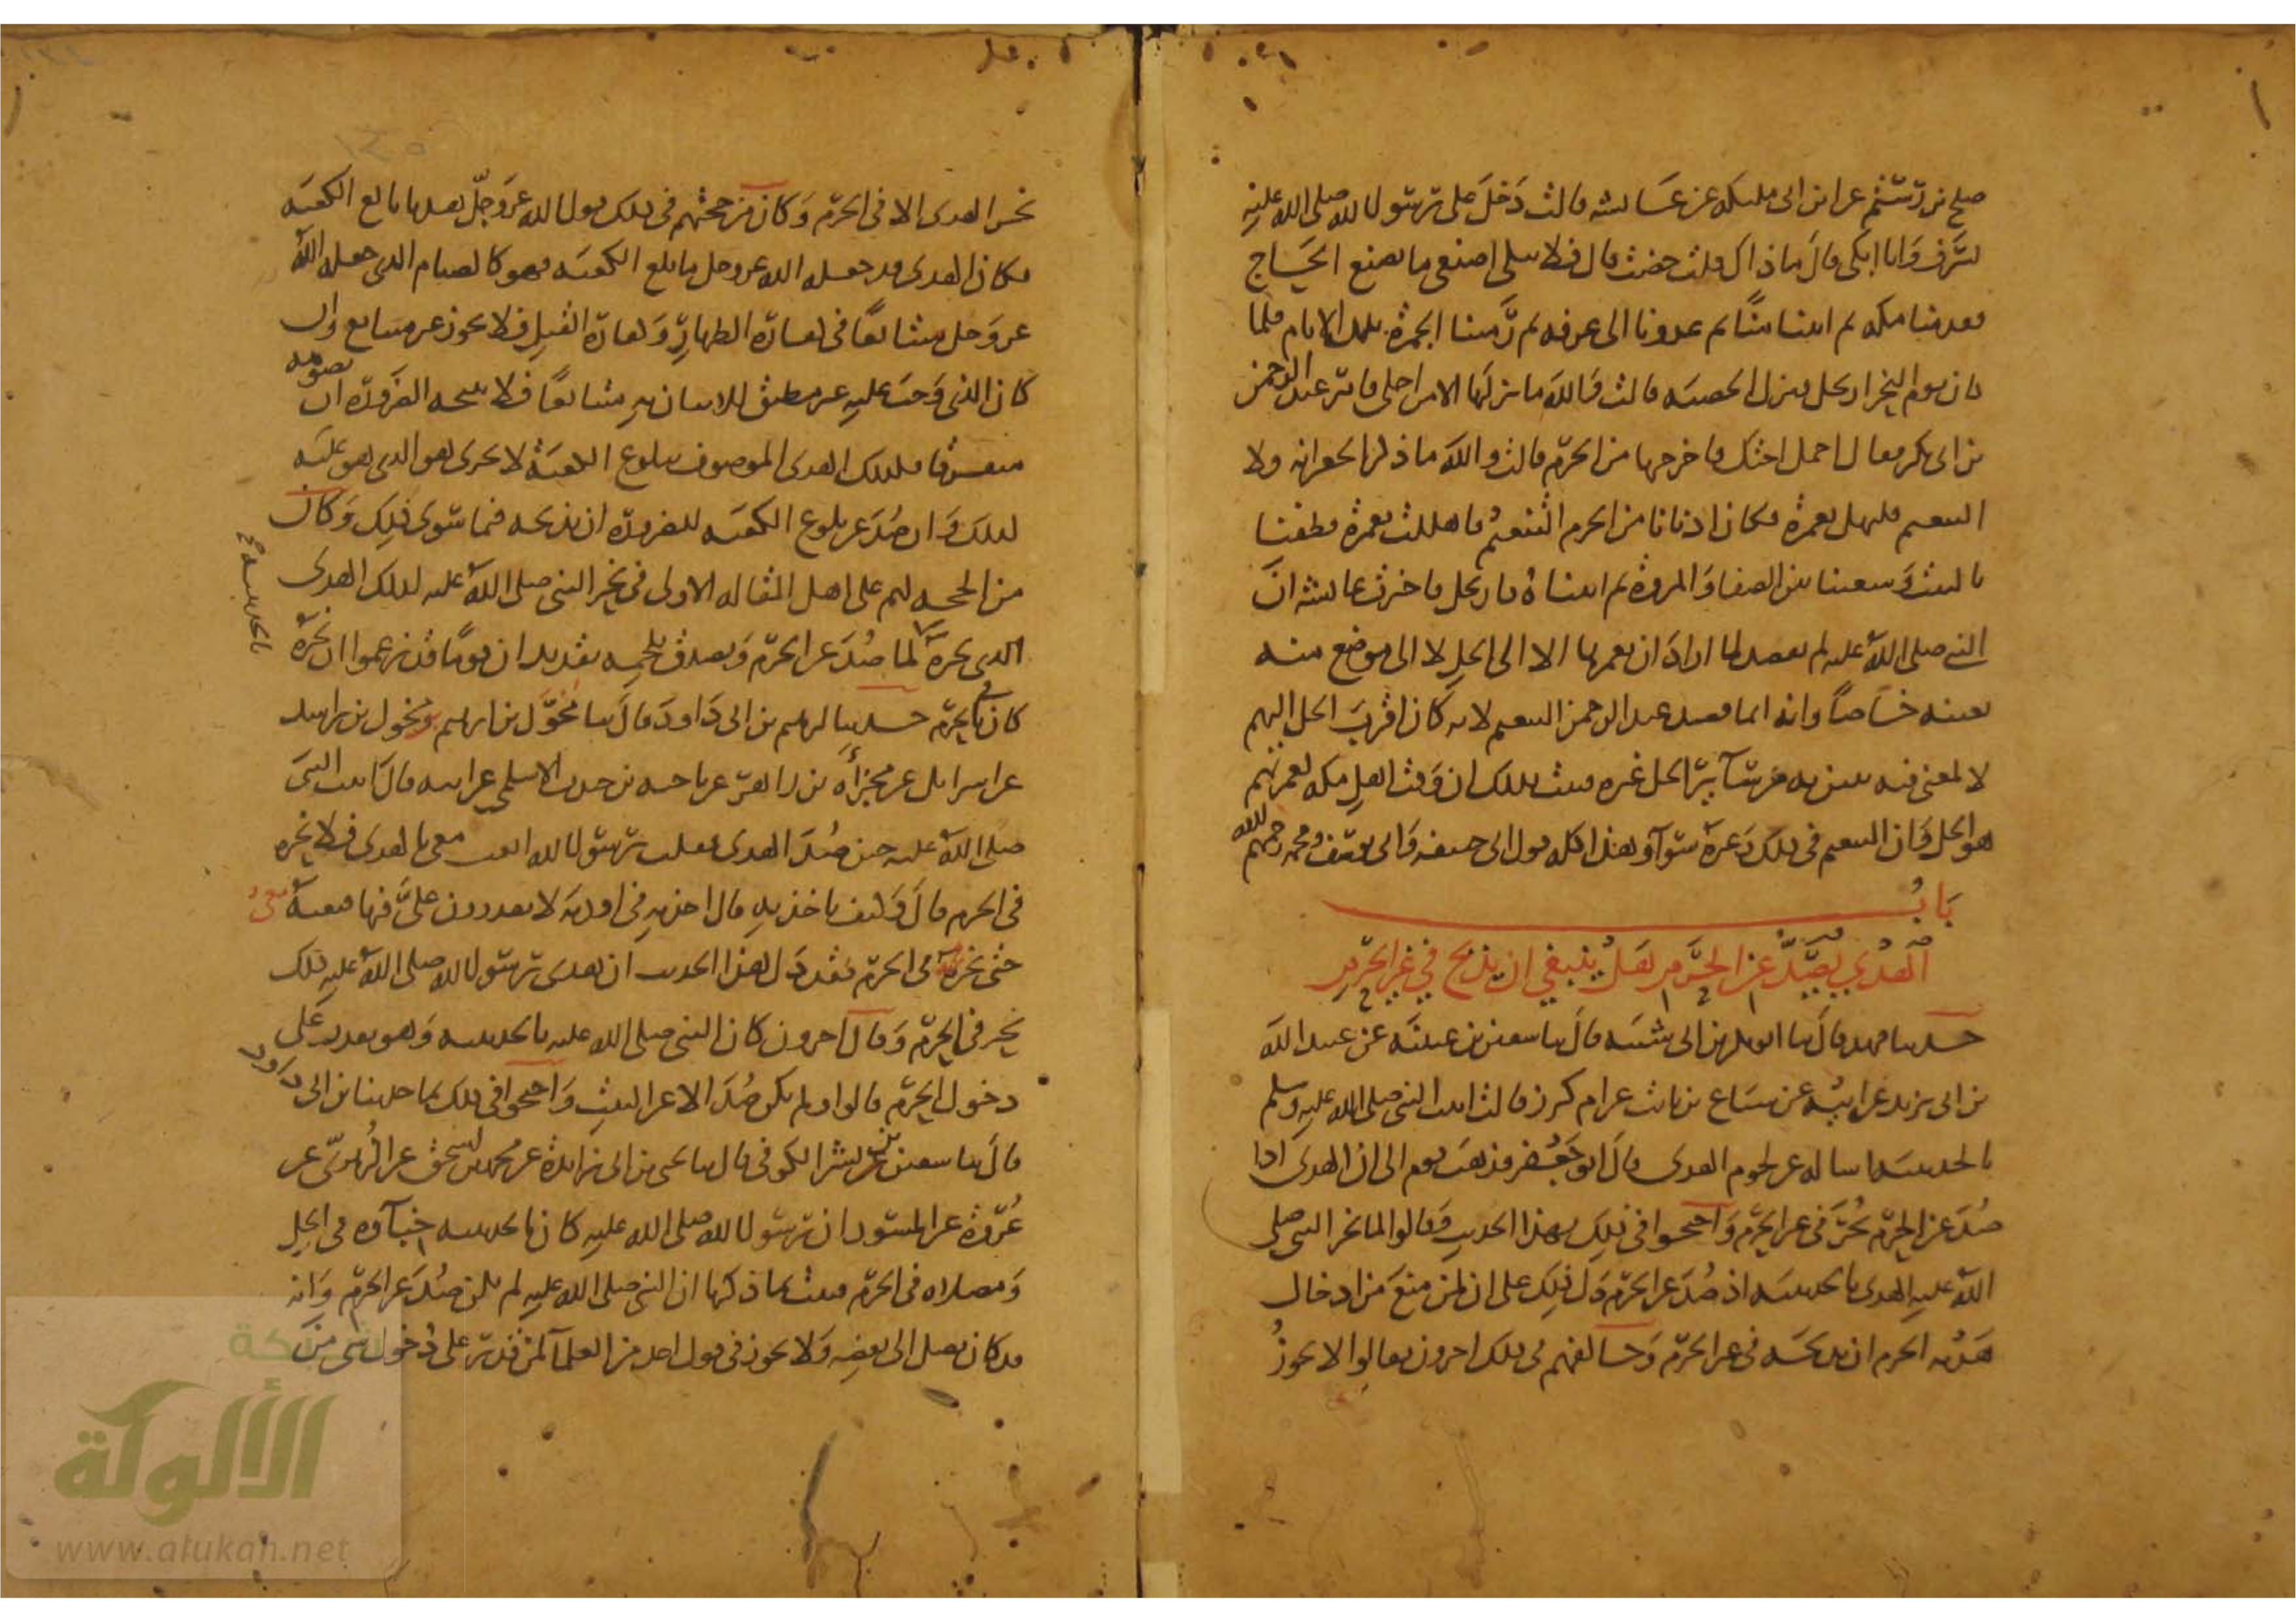 صلح بن رستم عن ابن ابى مليكه عن عائشه قالت دخل على رسول الله صلى الله عليه
بسرف وانا ابكى قال ما ذاك قلت حضت قال فلا تبكى اصنعى ما يصنع الحاج
فقدمنا مكه ثم اتينا منًا ثم غدونا الى عرفه ثم رمينا الجمره تلك الايام فلما
كان يوم النحر ارتحل فنزل الحصبه قالت فوالله ما نزلها الا من اجلى فامر عبد الرحمن
بن ابى بكر فقال احمل اختك فاخرجها من الحرم قالت والله ما ذكر الجعرانه ولا
التنعيم فلتهل بعمرة فكان ادنانا من الحرم التنعيم فاهللت بعمرة فطفنا
بالبيت وسعينا بين الصفا والمروة ثم اتيناه فارتحل فاخبرت عائشه ان
النبى صلى الله عليه لم يقصد لما اراد ان يعمرها الا الى الحل لا الى موضع منه
بعينه خاصًا وانه انما قصد عبد الرحمن التنعيم لانه كان اقرب الحل اليهم
لا لمعنى فيه يبين به من سآئر الحل غيره فثبت بذلك ان وقت اهل مكه لعمرتهم
هو الحل وان التنعيم فى ذلك وغيره سوآء وهذا كله قول ابى حنيفه وابى يوسف ومحمد رحمهم الله
باب
الهدي يصد عن الحرم هل ينبغي ان يذبح في غير الحرم
حدثنا فهد قال ثنا ابو بكر بن ابى شيبه قال ثنا سفين بن عيينه عن عبيد الله
بن ابى يزيد عن ابيه عن سباع بن ثابت عن ام كرز قالت اتيت النبى صلى الله عليه وسلم
بالحديبيه اساله عن لحوم الهدى قال ابو جعفر فذهب قوم الى ان الهدى اذا
صد عن الحرم نحر فى غير الحرم واحتجوا فى ذلك بهذا الحديث وقالوا لما نحر النبى صلى
الله عليه الهدى بالحديبيه اذ صد عن الحرم دل ذلك على ان لمن منع من ادخال
هديه الحرم ان يذبحه فى غير الحرم وخالفهم فى ذلك اخرون فقالوا لا يجوز
نحر الهدى الا فى الحرم وكان من حجتهم فى ذلك قول الله عز وجل هديا بالغ الكعبه
فكان الهدى قد جعله الله عز وجل ما بلغ الكعبه فهو كالصيام الذى جعله الله
عز وجل متتابعًا فى كفارة الظهار وكفارة القتل فلا يجوز غير متتابع وان
كان الذى وجب عليه غير مطيق للاتيان به متتابعًا فلا تبيحه الضرورة ان يصومه
متفرقا فكذلك الهدى الموصوف ببلوغ الكعبة لا يجزى الذى هو عليه
كذلك وان صد عن بلوغ الكعبه للضرورة ان يذبحه فيما سوى ذلك وكان
من الحجه لهم على اهل المقاله الاولى فى نحر النبى صلى الله عليه لذلك الهدى
بالحديبيه صح
الذى نحره لما صد عن الحرم وتصدق بلحمه بقديد ان قومًا قد زعموا ان نحره
كان فى الحرم حدثنا ابرهيم بن ابى داود قال ثنا مخول بن ابرهيم بن مخول بن راشد
عن اسرائل عن مجزأة بن زاهر عن ناجيه بن جندب الاسلمى عن ابيه قال اتيت النبى
صلى الله عليه حين صد الهدى فقلت يرسول الله ابعث معى بالهدى فلانحره
فى الحرم قال وكيف تاخذ به قال اخذ به فى اودية لا يقدرون على فيها فبعثه معى
حتى نحرته فى الحرم فقد دل هذا الحديث ان هدى رسول الله صلى الله عليه ذلك
نحر فى الحرم وقال اخرون كان النبى صلى الله عليه بالحديبيه وهو يقدر على
دخول الحرم قالوا ولم يكن صد الا عن البيت واحتجوا فى ذلك بما حدثنا بن ابى داود
قال ثنا سفين بن بشر الكوفى قال ثنا يحيى بن ابى زائدة عن محمد بن اسحق عن الزهرى عن
عروة عن المسور ان رسول الله صلى الله عليه كان بالحديبيه خبآؤه فى الحل
ومصلاه فى الحرم فثبت بما ذكرنا ان النبى صلى الله عليه لم يكن صد عن الحرم وانه
قد كان يصل الى بعضه ولا يجوز فى قول احد من العلمآ لمن قدر على دخول شى من
شبكة
الألوكة
www.alukah.net